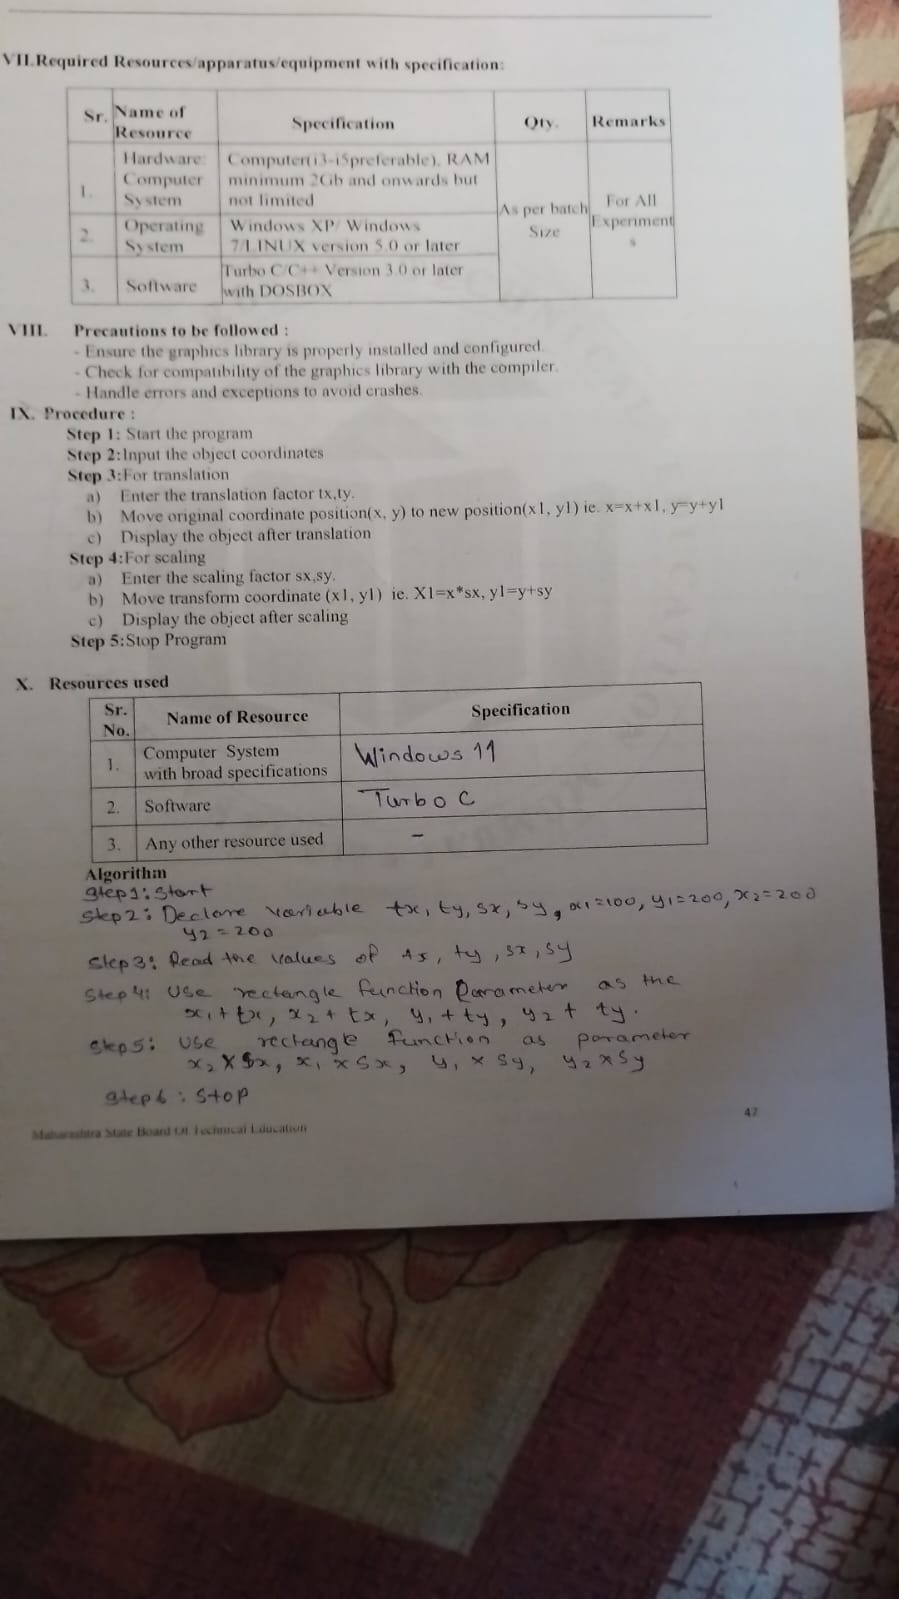 VII.Required Resources/apparatus/equipment with specification:
Sr. Name of Resource Specification Qty. Remarks
1. Hardware: Computer System Computer(i3-i5preferable), RAM minimum 2Gb and onwards but not limited As per batch Size For All Experiments
2. Operating System Windows XP/ Windows 7/LINUX version 5.0 or later
3. Software Turbo C/C++ Version 3.0 or later with DOSBOX
VIII. Precautions to be followed :
- Ensure the graphics library is properly installed and configured.
- Check for compatibility of the graphics library with the compiler.
- Handle errors and exceptions to avoid crashes.
IX. Procedure :
Step 1: Start the program
Step 2:Input the object coordinates
Step 3:For translation
a) Enter the translation factor tx,ty.
b) Move original coordinate position(x, y) to new position(x1, y1) ie. x=x+x1, y=y+y1
c) Display the object after translation
Step 4:For scaling
a) Enter the scaling factor sx,sy.
b) Move transform coordinate (x1, y1) ie. X1=x*sx, y1=y+sy
c) Display the object after scaling
Step 5:Stop Program
X. Resources used
Sr. No. Name of Resource Specification
1. Computer System with broad specifications Windows 11
2. Software Turbo C
3. Any other resource used -
Algorithm
Step1: Start
Step2: Declare variable tx, ty, sx, sy, x1=100, y1=200, x2=200
y2=200
Step3: Read the values of tx, ty, sx, sy
Step4: Use rectangle function Parameter as the
x1+tx, x2+tx, y1+ty, y2+ty.
Step5: Use rectangle function as parameter
x2×sx, x1×sx, y1×sy, y2×sy
Step6: Stop
47
Maharashtra State Board Of Technical Education